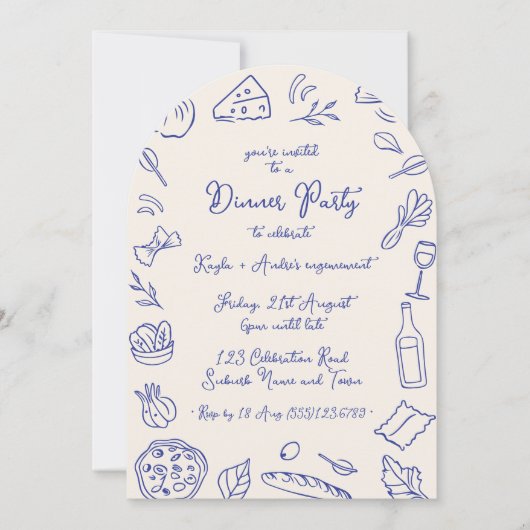 you're invited
to a
Dinner Party
to celebrate
Kayla + Andre's engemrement
Friday, 21st August
6pm until late
123 Celebration Road
Suburb Name and Town
• Rsvp by 18 Aug (555)123.6789 •